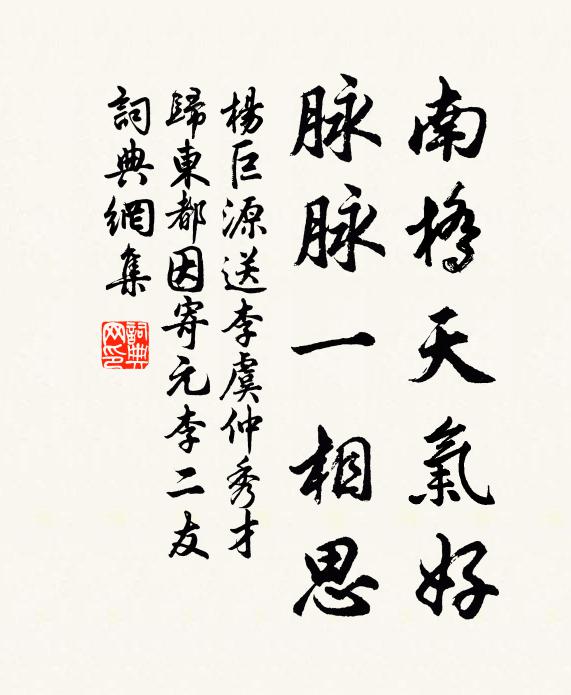 南橋天氣好
脉脉一相思
楊巨源送李虞仲秀才
歸東都因寄元李二友
詞典網集
詞典网印